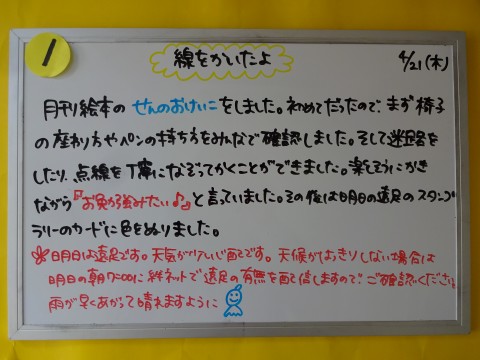 1
線をかいたよ
4/21(木)
月刊絵本の せんのおけいこをしました。初めてだったので、まず椅子
の座わり方やペンの持ち方をみんなで確認しました。そして迷路を
したり、点線を丁寧になぞってかくことができました。楽しそうにかき
ながら『お勉強みたい♪』と言っていました。その後は明日の遠足のスタンプ
ラリーのカードに色をぬりました。
明日は遠足です。天気が心配です。天候がはっきりしない場合は
明日の朝7:00に絆ネットで遠足の有無を配信しますので、ご確認ください。
雨が早くあがって晴れますように